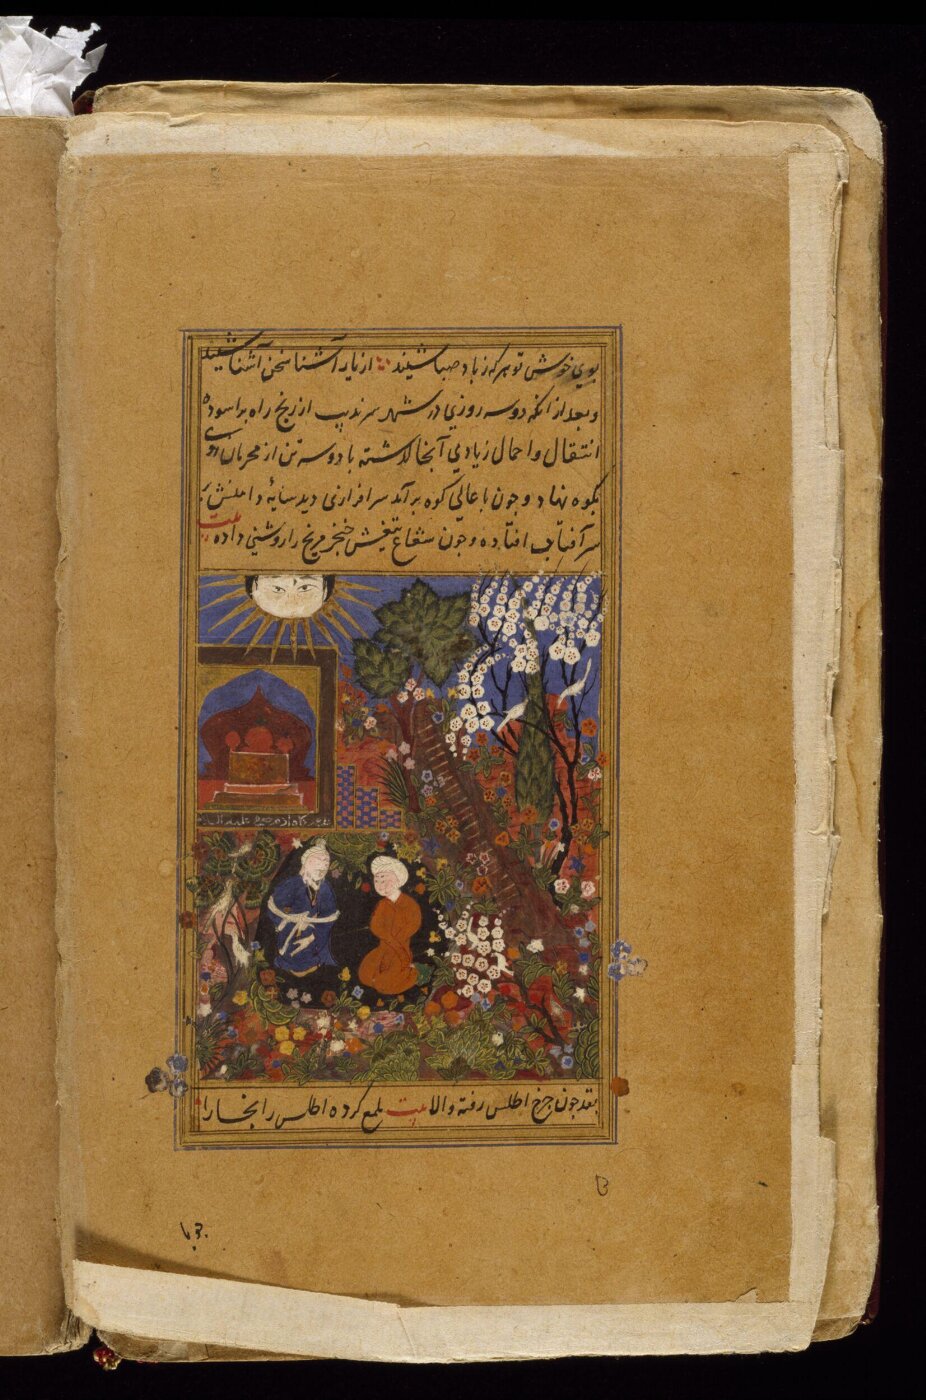 بوي خوشي تو هر که ز باد صبا شنید از یار آشنا سخن آشنا شنید
و بعد از آنکه دو سه روزي در شهر سرندیب از رنج راه براسوده
انتقال و احمال زیادي آنجا گذاشته با دو سه تن از محرمان روی
بکوه نهاد و چون باعالي کوه برآمد سرافرازی دید سایۀ دامنش بر
سر آفتاب افتاده و چون شعاع تیغش خنجر مریخ را روشني داده بیت
بقد چون چرخ اطلس رفته والا بیت ملمع کرده اطلس را بخارا